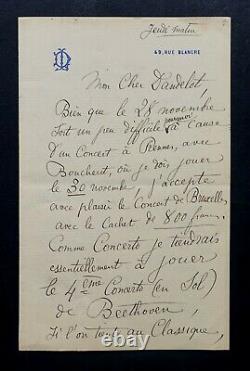 Jeudi matin
49, RUE BLANCHE
Mon Cher Dandelot,
Bien que le 28 novembre
soit un peu difficile pour moi à cause
d'un Concert à Rennes, avec
Boucherit, où je dois jouer
le 30 novembre, j'accepte
avec plaisir le Concert de Bruxelles
avec le Cachet de 800 francs.
Comme Concerto je tiendrais
essentiellement à jouer
le 4ème Concerto (en Sol)
de Beethoven,
Si l'on tient au Classique,